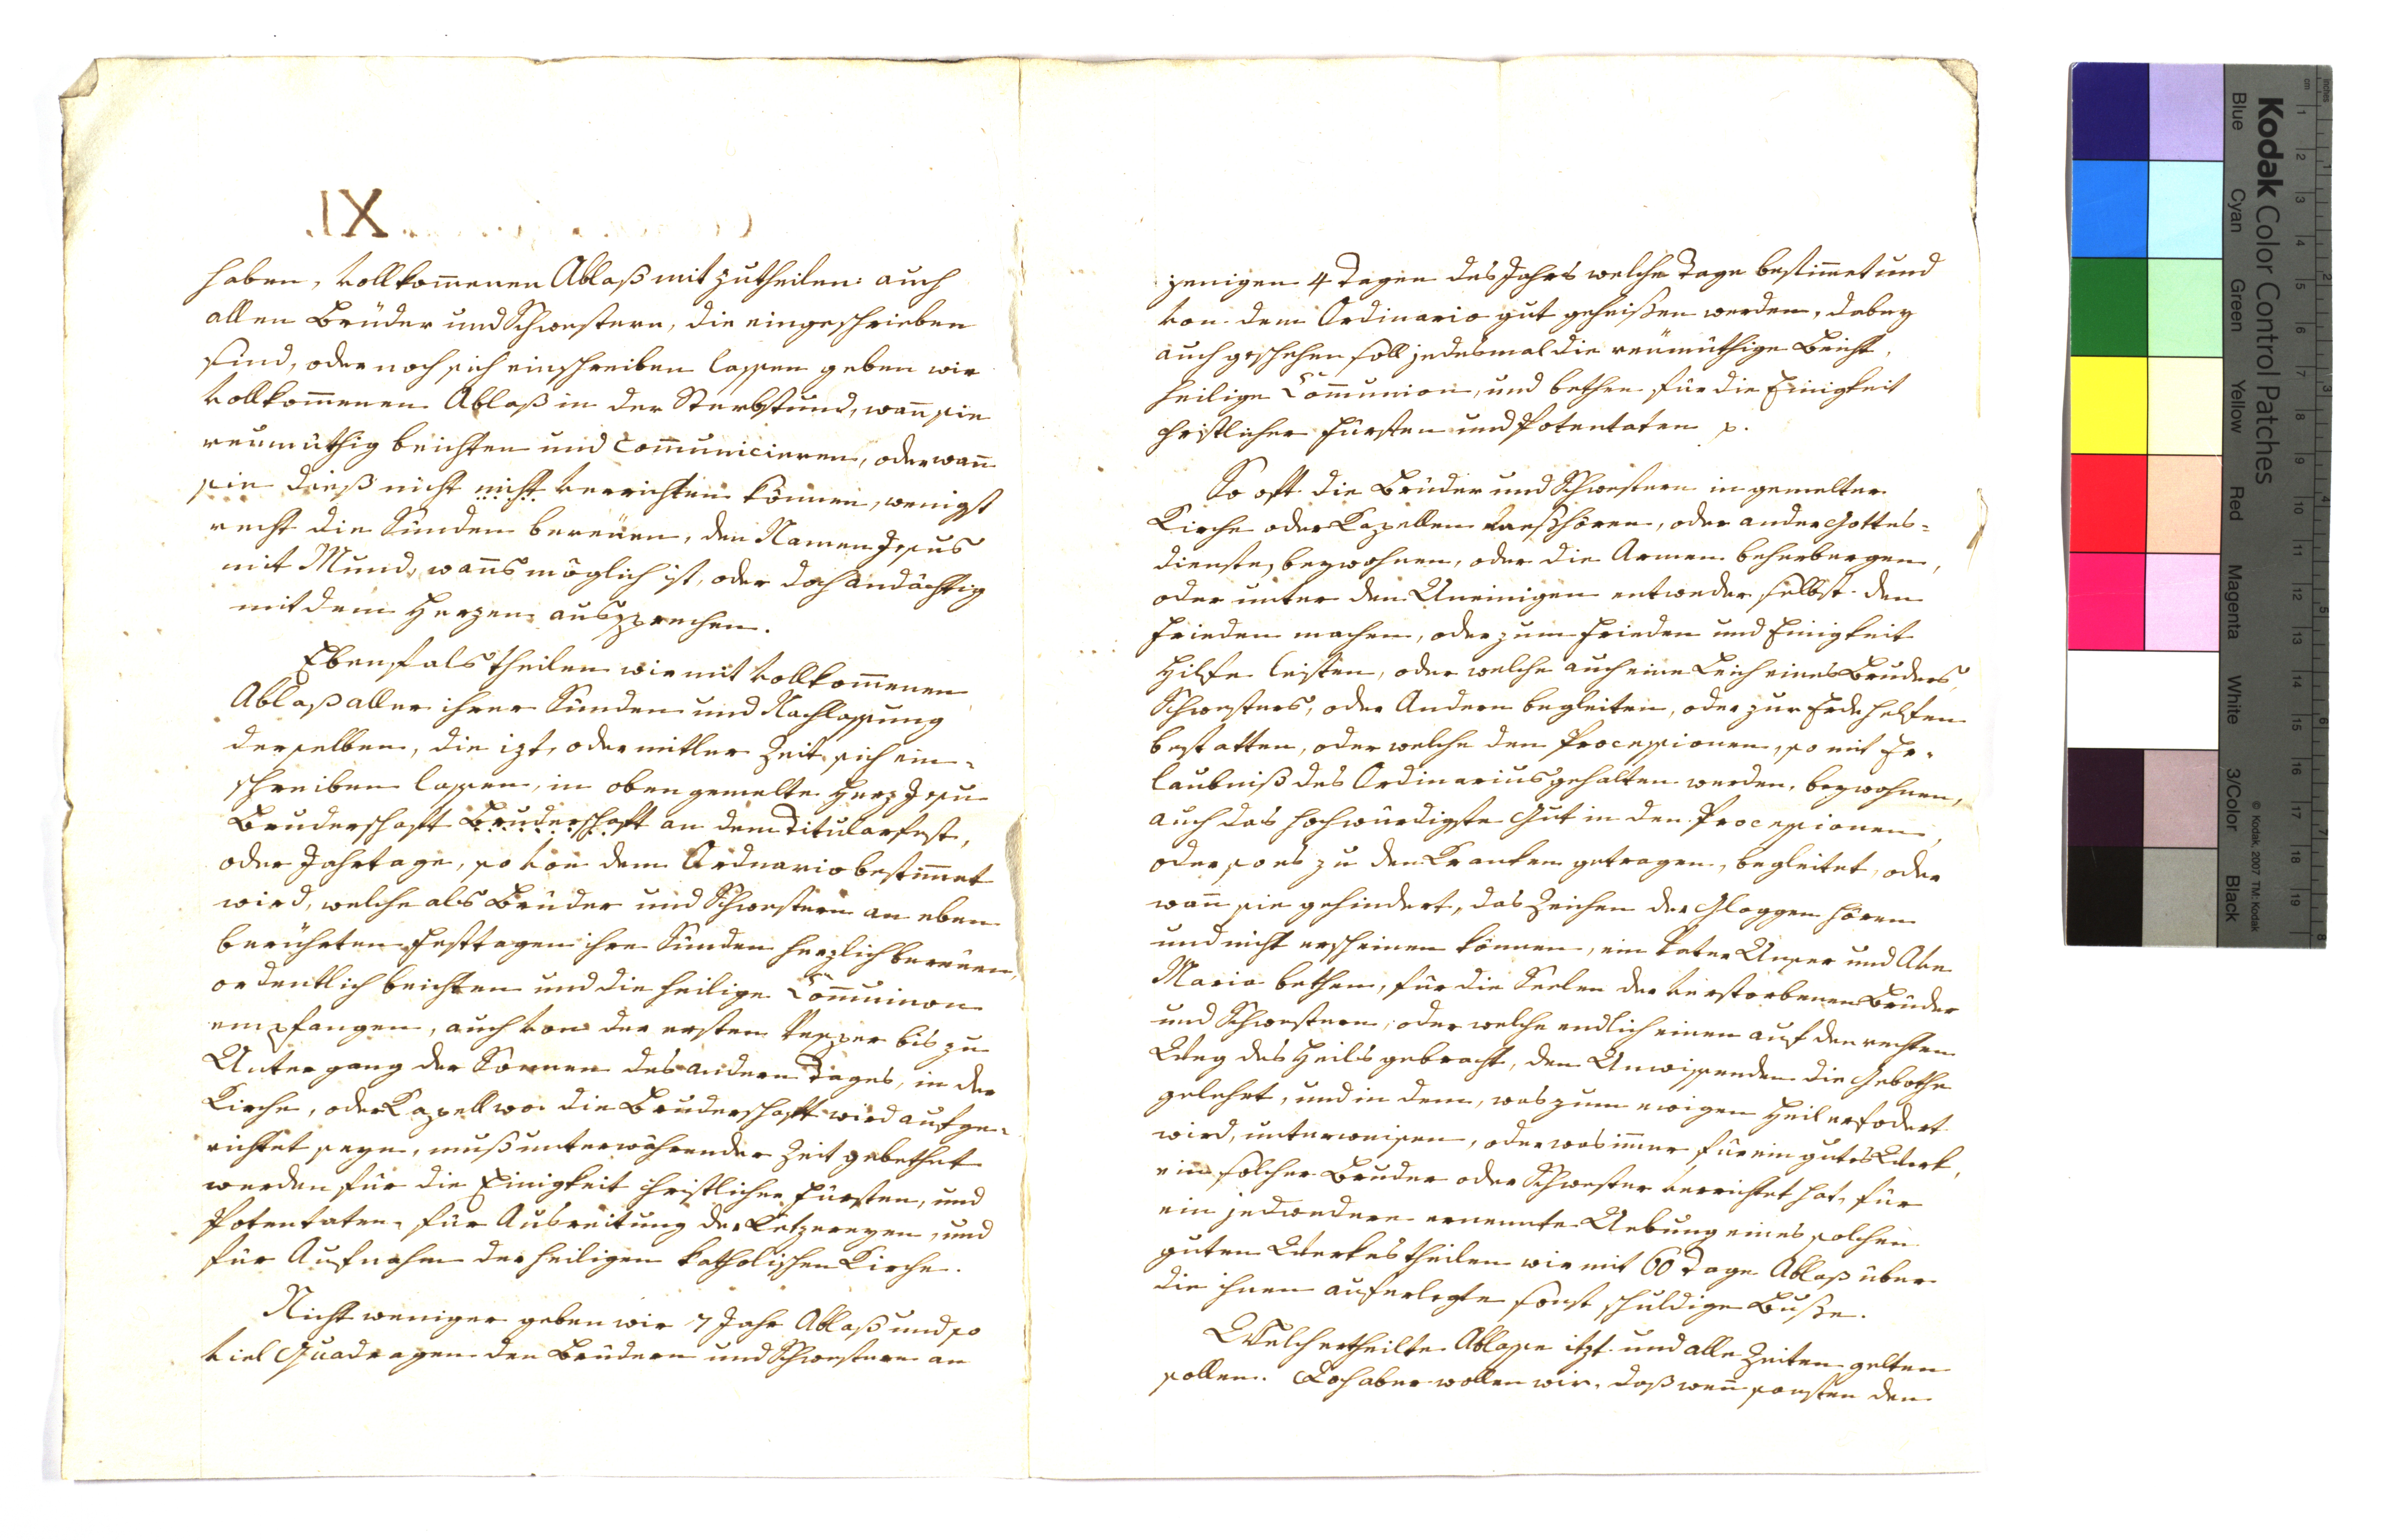 haben, vollkom̄enen Ablaß mit zutheilen: auch
allen Brüder und Schwestern, die eingeschrieben
sind, oder noch sich einschreiben lassen geben wir
vollkom̄enen Ablaß in der Sterbstund, wan̄ sie
reumüthig beichten und com̄unicieren, oder wan̄
sie dieß nicht nicht verrichten können, wenigst
recht die Sünden bereüen, den Namen Jesus
mit Mund, wan̄s möglich ist, oder doch andächtig
mit dem Herzen aussprechen.
Ebenfals theilen wir mit vollkom̄enen
Ablaß aller ihrer Sünden und Nachlassung
derselben, die izt, oder mitler Zeit sich ein-
schreiben lassen, in oben gemelte Herz Jesu
Bruderschaft Bruderschaft an dem Titularfest,
oder Jahrtage, so von dem Ordnario bestim̄et
wird, welche als Brüder und Schwestern an eben
berührten Festtagen ihre Sünden herzlich bereüen,
ordentlich beichten und die heilige Com̄union
empfangen, auch von der ersten Vesper bis zu
Untergang der Sonnen des andern Tages, in der
Kirche, oder Kapell wo die Bruderschaft wird aufge-
richtet seyn, muß unterwährender Zeit gebethet
werden für die Einigkeit christlicher Fürsten, und
Potentaten, für Ausreitung der Ketzereyen, und
für Aufnahm der heiligen katholischen Kirche.
Nicht weniger geben wir 7 Jahr Ablaß und so
viel Quadragen den Brüdern und Schwestern an
jenigen 4 Tagen des Jahrs welche Tage bestim̄et und
von dem Ordinario gut geheißen werden, dabey
auch geschehen soll jedesmal die reümüthige Beicht,
heilige Com̄union, und bethen für die Einigkeit
christlicher Fürsten und Potentaten p.
So oft die Brüder und Schwestern in gemelter
Kirche oder Kapellen hören, oder ander Gottes-
dienste, beywohnen, oder die Armen beherbergen,
oder unter den Uneinigen entweder selbst den
Frieden machen, oder zum Frieden und Einigkeit
Hilfe leisten, oder welche auch eine Leich eines Bruders,
Schwesters, oder Andern begleiten, oder zur Erde helfen
bestatten, oder welche den Processionen, so mit Er-
laubniß des Ordinarius gehalten werden, beywohnen,
auch das hochwürdigste Gut in den Processionen,
oder so es zu den Kranken getragen, begleitet, oder
wan̄ sie gehindert, das Zeichen der Gloggen hören
und nicht erscheinen können, ein Pater Unser und Ave
Maria bethen, für die Seelen der verstorbenen Brüder
und Schwestern, oder welche endlich einen auf den rechten
Weg des Heils gebracht, den Unwissenden die Gebothe
gelehrt, und in dem, was zum ewigen Heil erfodert
wird, unterweisen, oder was im̄er für ein gutes Werk,
ein solcher Bruder oder Schwester verrichtet hat, für
ein jedwedere ernennte Uebung eines solchen
guten Werkes theilen wir mit 60 Tage Ablaß über
die ihnen auferlegte sonst schuldige Busse.
Welch ertheilte Ablasse itzt und alle Zeiten gelten
sollen. Doch aber wollen wir, daß wen̄ sonsten den